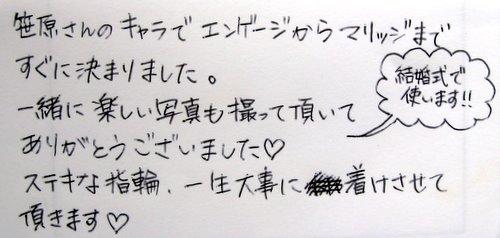 笹原さんのキャラでエンゲージからマリッジまで
すぐに決まりました。
一緒に楽しい写真も撮って頂いて
ありがとうございました♡
ステキな指輪、一生大事に着けさせて
頂きます♡
結婚式で
使います!!